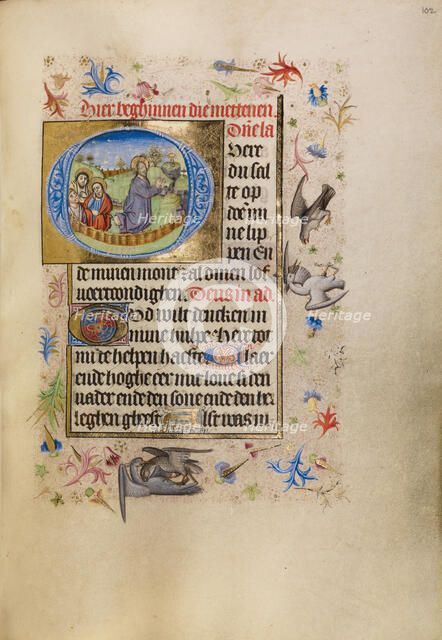 102
Hier beghinnen die mettenen.
Dñe la
Here
du sal
te op
doē mi
ne lip
pen En
de minen mont zal dinen lof
voertcondighen. Deus in ad
God wilt dencken in
mine hulpe Here tot
mi de helpen haeste
ende hoghe eer mit love si den
vader ende den sone ende den he
leghen gheest
Heritage
Heritage
Heritage
Heritage
Heritage
Heritage
Heritage